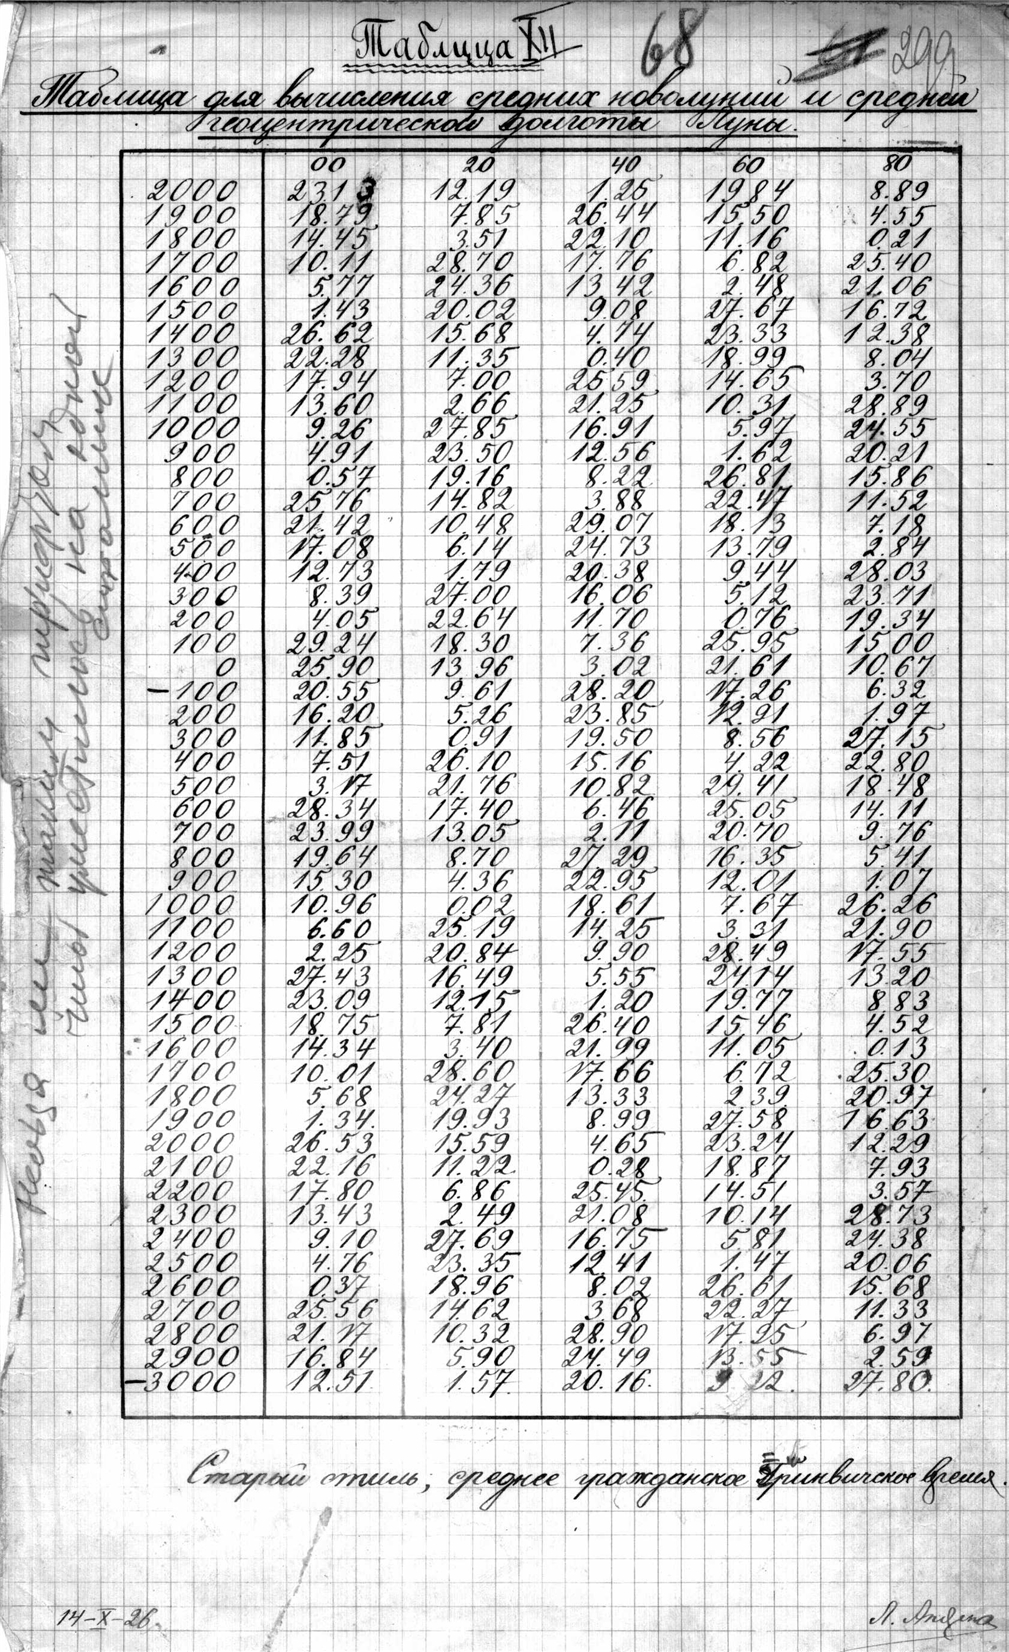 Таблица XII
68
299
Таблица для вычисления средних новолуний и средней
геоцентрической долготы Луны.
00 20 40 60 80
2000 23.13 12.19 1.25 19.84 8.89
1900 18.79 7.85 26.44 15.50 4.55
1800 14.45 3.51 22.10 11.16 0.21
1700 10.11 28.70 17.76 6.82 25.40
1600 5.77 24.36 13.42 2.48 21.06
1500 1.43 20.02 9.08 27.67 16.72
1400 26.62 15.68 4.74 23.33 12.38
1300 22.28 11.35 0.40 18.99 8.04
1200 17.94 7.00 25.59 14.65 3.70
1100 13.60 2.66 21.25 10.31 28.89
1000 9.26 27.85 16.91 5.97 24.55
900 4.91 23.50 12.56 1.62 20.21
800 0.57 19.16 8.22 26.81 15.86
700 25.76 14.82 3.88 22.47 11.52
600 21.42 10.48 29.07 18.13 7.18
500 17.08 6.14 24.73 13.79 2.84
400 12.73 1.79 20.38 9.44 28.03
300 8.39 27.00 16.06 5.12 23.71
200 4.05 22.64 11.70 0.76 19.34
100 29.24 18.30 7.36 25.95 15.00
0 25.90 13.96 3.02 21.61 10.67
-100 20.55 9.61 28.20 17.26 6.32
200 16.20 5.26 23.85 12.91 1.97
300 11.85 0.91 19.50 8.56 27.15
400 7.51 26.10 15.16 4.22 22.80
500 3.17 21.76 10.82 29.41 18.48
600 28.34 17.40 6.46 25.05 14.11
700 23.99 13.05 2.11 20.70 9.76
800 19.64 8.70 27.29 16.35 5.41
900 15.30 4.36 22.95 12.01 1.07
1000 10.96 0.02 18.61 7.67 26.26
1100 6.60 25.19 14.25 3.31 21.90
1200 2.25 20.84 9.90 28.49 17.55
1300 27.43 16.49 5.55 24.14 13.20
1400 23.09 12.15 1.20 19.77 8.83
1500 18.75 7.81 26.40 15.46 4.52
1600 14.34 3.40 21.99 11.05 0.13
1700 10.01 28.60 17.66 6.72 25.30
1800 5.68 24.27 13.33 2.39 20.97
1900 1.34 19.93 8.99 27.58 16.63
2000 26.53 15.59 4.65 23.24 12.29
2100 22.16 11.22 0.28 18.87 7.93
2200 17.80 6.86 25.45 14.51 3.57
2300 13.43 2.49 21.08 10.14 28.73
2400 9.10 27.69 16.75 5.81 24.38
2500 4.76 23.35 12.41 1.47 20.06
2600 0.37 18.96 8.02 26.61 15.68
2700 25.56 14.62 3.68 22.27 11.33
2800 21.17 10.32 28.90 17.95 6.97
2900 16.84 5.90 24.49 13.55 2.59
-3000 12.51 1.57 20.16 9.22 27.80
Старый стиль, среднее гражданское Гринвичское время.
Нельзя ли таким шрифтом
чтобы уместилось на одной
странице
14-X-26.